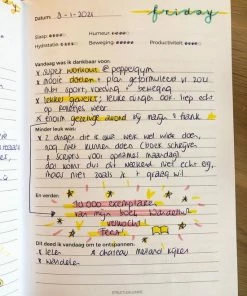 Datum: 8-1-2021
friday
Slaap: Humeur:
Hydratatie: Beweging: Productiviteit:
Vandaag was ik dankbaar voor:
x super workout @ peppelgym
x mooie doelen + plan geformuleerd vr 2021
mbt sport, voeding + beweging
x lekker gewerkt, leuke dingen ook liep echt
op rolletjes
x enorm gezellige avond bij marijn & frank
Minder leuk was:
x 2 dingen die ik qua werk wel wilde doen,
nog niet kunnen doen (boek schrijven
& scripts voor opnames maandag)
dan komt dus dit weekend wel echt eg,
maar niet zoals ik + graag wil
En verder:
10.000 exemplaren
van mijn boek
verkocht!
Feest!
Dit deed ik vandaag om te ontspannen:
x lezen x chateau meiland kijken
x wandelen